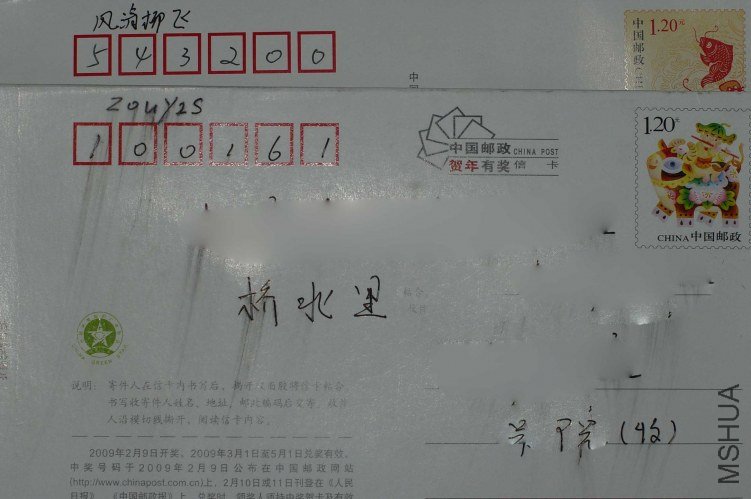 风海柳飞
543200
1.20元
中国邮政
zouy2s
100161
中国邮政 CHINA POST
贺年有奖 信 卡
1.20元
CHINA 中国邮政
桥北里
粘合
GREEN
说明：寄件人在信卡内书写后，揭开双面胶将信卡粘合
书写收寄件人姓名、地址，邮政编码后交寄，收件
人沿模切线撕开，阅读信卡内容。
(收)
2009年2月9日开奖。2009年3月1日至5月1日兑奖有效。
中奖号码于2009年2月9日公布在中国邮政网站
(http://www.chinapost.com.cn)上，2月10日或11日刊登在《人民
日报》、《中国邮政报》上，兑奖时，领奖人须持中奖贺卡及有效
MSHUA